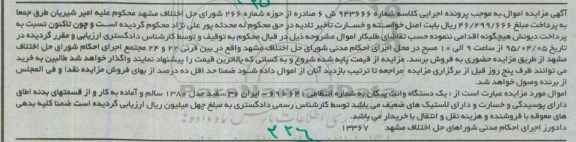 آگهی مزایده اموال..به موجب پرونده اجرایی کلاسه شماره ۹۴۳۶۶۶ ش ۶ صادره از حوزه شماره ۲۲۶ شورای حل اختلاف مشهد محکوم علیه امیر شیریان طرق جمعا
به پرداخت مبلغ ۴۶/۲۹۹/۶۶۶ ریال بابت اصل خواسته و خسارت تاخیر تادیه در حق محکوم له محدثه پور علی نژاد محکوم گردیده است و چون تاکنون نسبت به
پرداخت دیونش هیچگونه اقدامی ننموده حسب تقاضای طلبکار اموال مشروحه ذیل در قبال محکوم به توقیف و توسط کارشناس دادگستری ارزیابی و مقرر گردیده در
تاریخ ۹۵/۰۴/۰۵ از ساعت ۹ الی ۱۰ صبح در محل اجرای احکام مدنی شورای حل اختلاف مشهد واقع در بین قرنی ۲۲ و ۲۴ مجتمع اجرای احکام شورای حل اختلاف
مشهد از طریق مزایده حضوری به فروش برسد. مزایده از قیمت پایه شروع و به کسانی که بالاترین قیمت را پیشنهاد نمایند واگذار خواهد شد طالبین به خرید
می توانند ظرف پنج روز قبل از برگزاری مزایده مراجعه تا ترتیب بازدید آنان از اموال داده شود ضمنا حد اقل ده درصد از بهای فروش مزایده نقدا و فی المجلس
از برنده وصول خواهد شد.
اموال مورد مزایده عبارت است از : یک دستگاه وانت پیکان به شماره انتظامی ایران ۳۶ مدل ۱۳۸۰ سالم و آماده به کار و از قسمتهای بدنه اطاق
دارای پوسیدگی و خسارت و دارای لاستیک های ضعیف می باشد توسط کارشناس رسمی دادگستری به مبلغ چهل میلیون ریال ارزیابی گردیده است ضمنا کلیه بدهی
های معوقه با فروشنده و هزینه نقل و انتقال با خریدار می باشد.
دادورز اجرای احکام مدنی شوراهای حل اختلاف مشهد ۱۳۳۶۷
۲۲۶